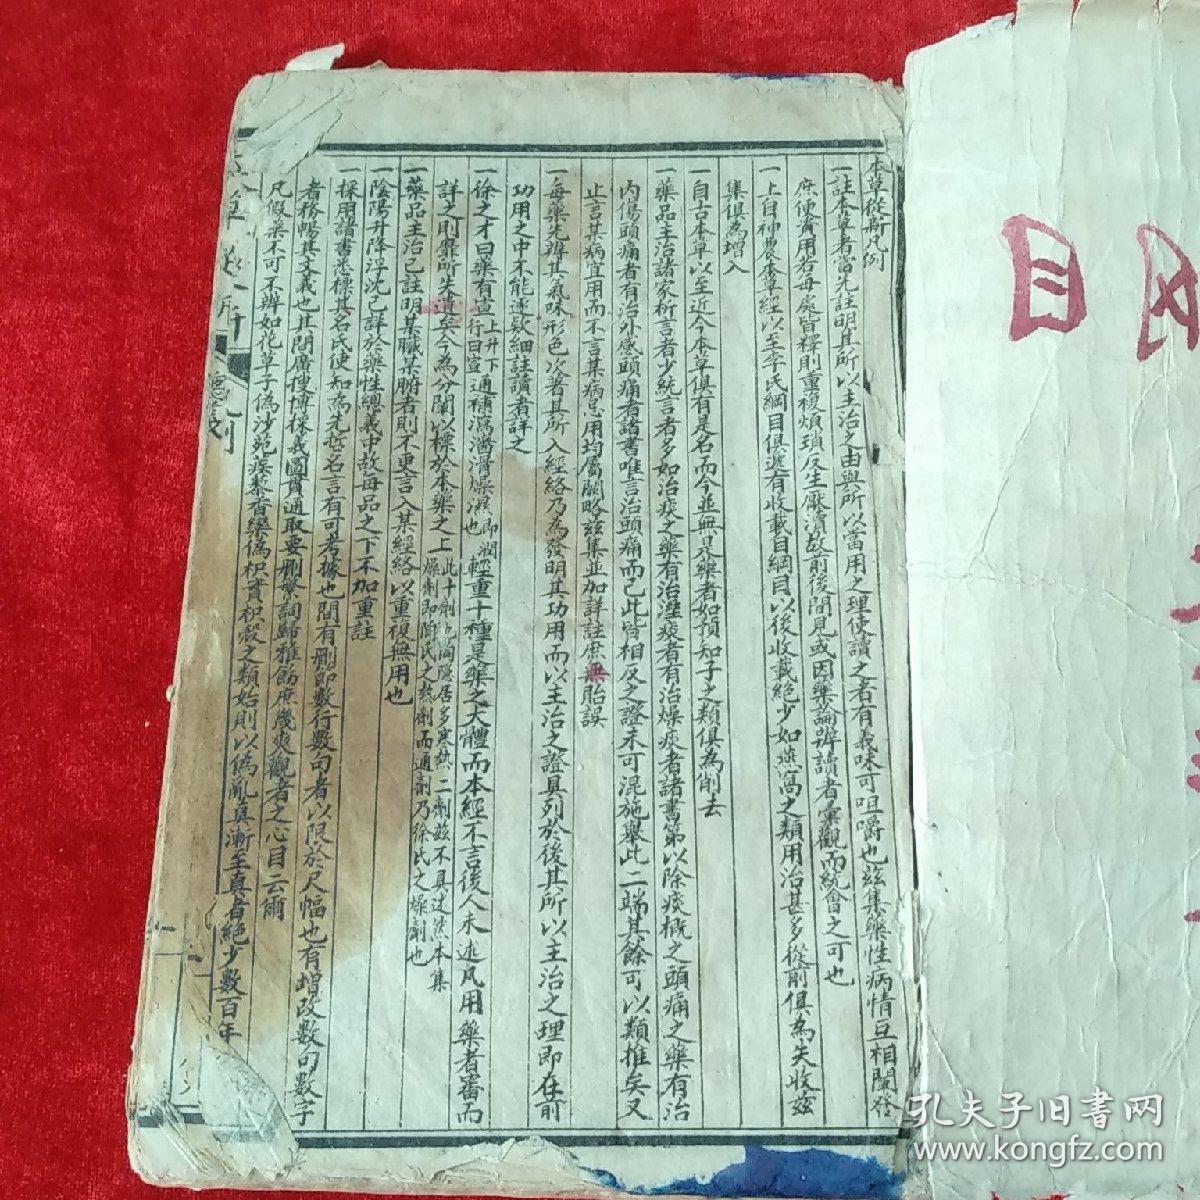 本草從新凡例
一註本草者當先註明其所以主治之由與所以當用之理使讀之者有義味可咀嚼也茲集藥性病情互相闡發
庶便資用若每處皆釋則重複煩瑣反生厭瀆故前後間見或因藥論辨讀者彙觀而統會之可也
一上自神農本草經以至李氏綱目俱遞有收載自綱目以後收載絕少如燕窩之類用治甚多從前俱為失收茲
集俱為增入
一自古本草以至近今本草俱有是名而今並無是藥者如預知子之類俱為削去
一藥品主治諸家析言者少統言者多如治痰之藥有治溼痰者有治燥痰者諸書第以除痰概之頭痛之藥有治
內傷頭痛者有治外感頭痛者諸書唯言治頭痛而已此皆相反之證未可混施舉此二端其餘可以類推矣又
止言其病宜用而不言某病忌用均屬闕略茲集並加詳註庶無貽誤
一每藥先辨其氣味形色次著其所入經絡乃為發明其功用而以主治之證具列於後其所以主治之理即在前
功用之中不能逐款細註讀者詳之
一徐之才曰藥有宣上升下行曰宣通補瀉濇滑燥濕即潤冷也輕重十種是藥之大體而本經不言後人未述凡用藥者審而
詳之則靡所失遺矣今為分闡以標於本藥之上此十劑也陶隱居多寒熱二劑茲不具述然本集燥劑即陶氏之熱劑而通劑乃徐氏之燥劑也
一藥品主治已註明某臟某腑者則不更言入某經絡以重複無用也
一陰陽升降浮沈已詳於藥性總義中故每品之下不加重註
一採用諸書悉標其名氏使知為先哲名言有可考據也間有刪節數行數句者以限於尺幅也有增改數句數字
者務暢其文義也其閒廣搜博採義圖貫通取要刪繁詞歸雅飭庶幾爽觀者之心目云爾
凡假藥不可不辨如花草子偽沙苑蒺藜香欒偽枳實枳殼之類始則以偽亂真漸至真者絕少數百年
目
孔夫子旧書网
www.kongfz.com